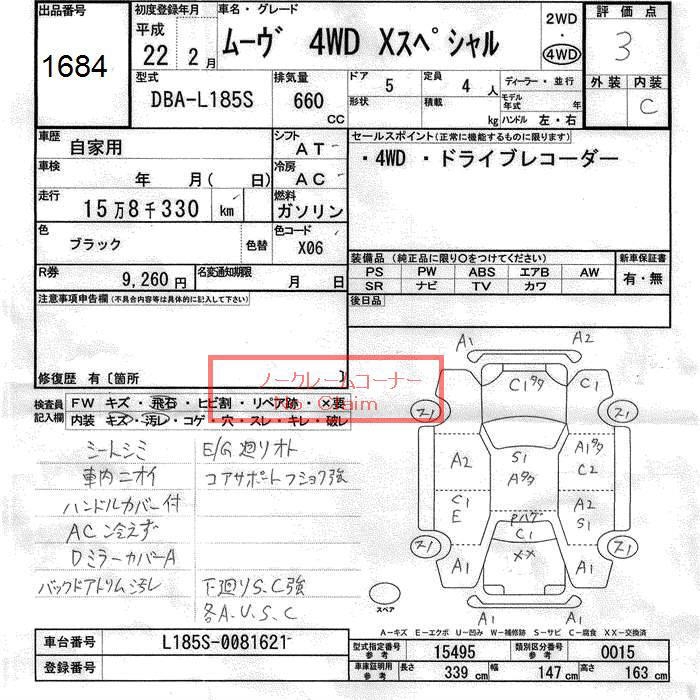 出品番号
1684
初度登録年月
平成
22 2月
車名・グレード
ムーヴ 4WD Xスペシャル
2WD
・
4WD
評価点
3
外装 内装
C
型式
DBA-L185S
排気量
660
CC
ドア
5
定員
4 人
形状
積載
kg
ディーラー・並行
モデル
年式 年
ハンドル 左・右
車歴
自家用
シフト
AT
車検
年 月( 日)
冷房
AC
走行
15万8千330 km
燃料
ガソリン
色
ブラック
色替
色コード
X06
R券
9,260円
名変通知期限
月 日
セールスポイント(正常に機能するものに限ります)
・4WD ・ドライブレコーダー
装備品(純正品に限り○をつけてください)
PS PW ABS エアB AW
SR ナビ TV カワ
新車保証書
有・無
後日品
注意事項申告欄(不具合内容等は具体的に記入して下さい)
修復歴 有〔箇所 〕
ノークレームコーナー
No Claim
検査員
記入欄
FW キズ・飛石・ヒビ割・リペア跡・×要
内装 キズ・汚レ・コゲ・穴・スレ・キレ・破レ
シートシミ
車内ニオイ
ハンドルカバー付
AC冷えず
DミラーカバーA
バックドアトリム汚レ
E/G廻りオト
コアサポートフショク強
下廻りS、C強
各A.U.S.C
A1 A2
C1
C1
ス1 ス1
A2
S1
A1
C2
C1
E
A2
S1
Pハゲ
C1
ス1 ス1
××
A1 A1
A1 A1
スペア
A-キズ E-エクボ U-凹み W-補修跡 S-サビ C-腐食 XX-交換済
車台番号
L185S-0081621
登録番号
型式指定番号
参考
15495
類別区分番号
参考
0015
車庫証明用
参考
長さ
339 cm
幅
147 cm
高さ
163 cm